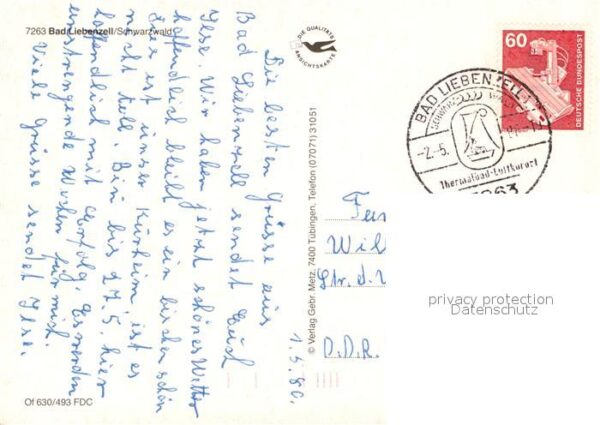 7263 Bad Liebenzell/Schwarzwald
DIE QUALITÄTS
ANSICHTSKARTE
60
DEUTSCHE BUNDESPOST
BAD LIEBENZELL
-2.-5.
Thermalbad-Luftkurort
1.5.86.
Die besten Grüsse aus
Bad Liebenzell sendet Euch
Ilse. Wir haben jetzt schönes Wetter
hoffendlich bleibt es ein bischen schön
Es ist unser Kurheim, ist es
nicht toll. Bin bis 27.5. hier
hoffendlich mit Erfolg. Es werden
anstrengende Wochen für mich.
Viele Grüsse sendet Ilse.
© Verlag Gebr. Metz, 7400 Tübingen, Telefon (07071) 31051
Fam
Wil
Str. d.
D.D.R.
privacy protection
Datenschutz
Of 630/493 FDC